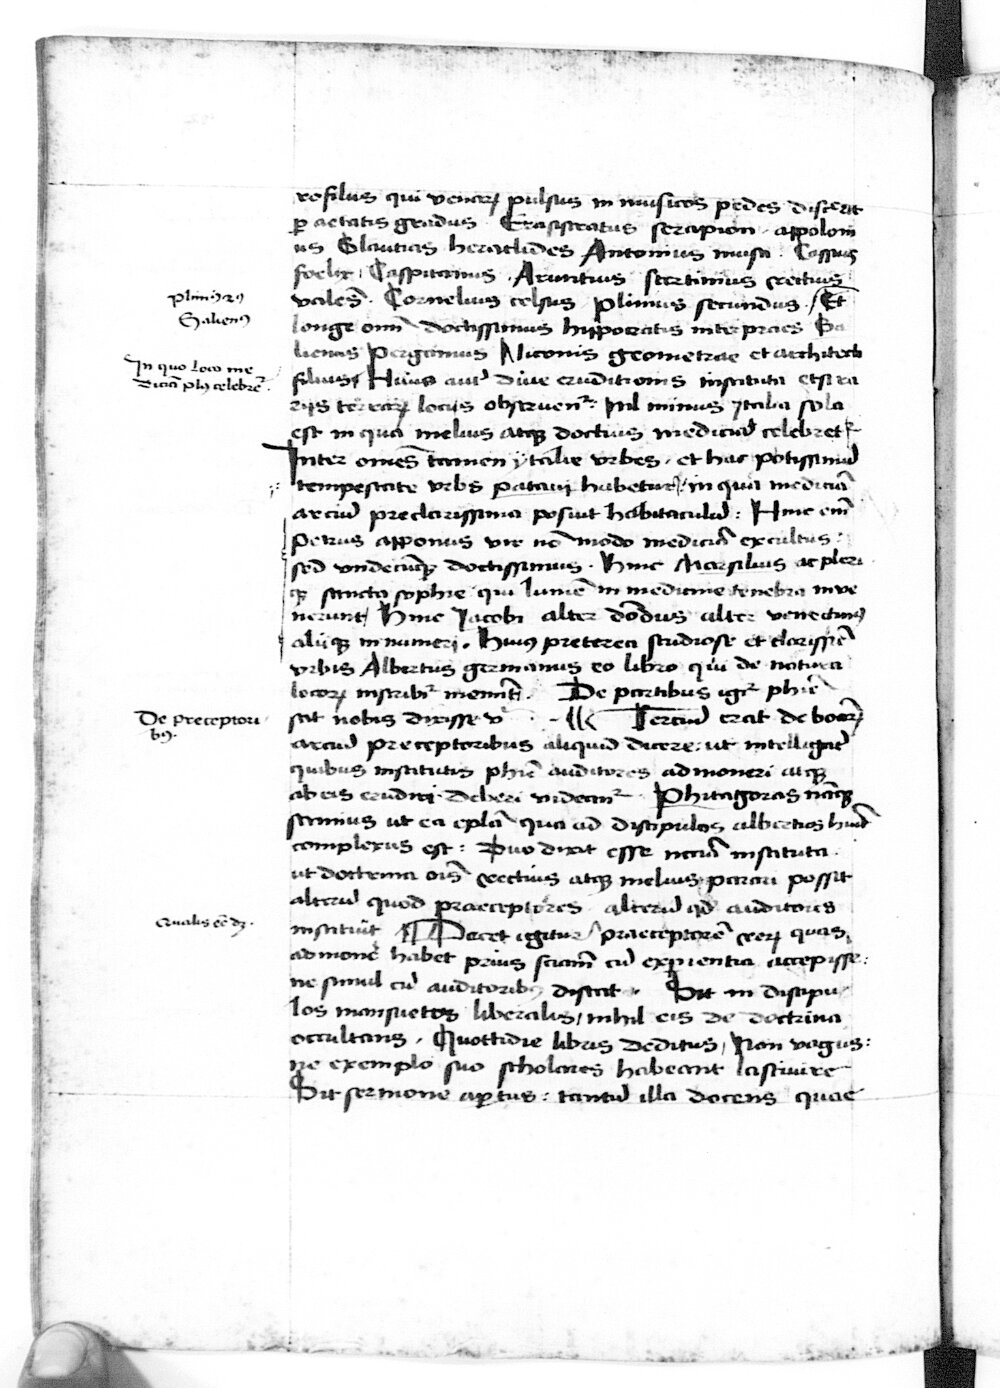 rofilus qui venarꝝ pulsus in musicos pedes discreit
ꝑ aetatis gradus. Erasistratus serapion. appoloni
us Glautias heraclides Antonius musa. Cassius
foelix, Caspitanus. Aruntius stertinius rectius
valēs. Cornelius celsus plinius secundus. Et
longe oīm doctissimus hyppocratis interpraes Ga
lienus pergamus Niconis geometrae et architecti
filius, Huius aut̄ diue eruditionis instituta etsi va
rijs terrarꝝ locis obseruent᷑: Nil minus ytalia sola
est in qua melius atqꝫ doctius medicīa celebret᷑.
Inter omēs tamen ytalie vrbes, et hac potissimū
tempestate vrbs pataui habetur, in qua mediciā
arciū preclarissima posuit habitaculū: Hinc enī
petrus apponus vir nō modo mediciā excultus:
sed vndecūqꝫ doctissimus. Hinc Marsilius ac pleri
qꝫ sancta sophie qui lumē in medicine tenebra inve
nerunt, Hinc Jacobi alter dōdus alter venetinꝰ
alijqꝫ innumeri. Huiꝰ preterea studiose et clarissīe
vrbis Albertus germanus eo libro qui de natura
locorꝝ inscribit᷑ meminit. De partibus igit᷑ phīe
sat nobis dixisse Terciū erat de boarꝝ
arciū preceptoribus aliquid dicere: ut intelligāt
quibus institutis phīe auditores admoneri atqꝫ
ab eis erudiri deberi videant᷑. Phitagoras nāqꝫ
samius ut ea eplā qua ad discipulos
complexus est: Duo dixit esse instituta.
ut doctrina oīs rectius atqꝫ melius parari possit
alterū quod praeceptores alterū qd auditores
instituūt Decet igitur praeceptorē rerꝝ quas
admonē habet prius sciam̄ cū experientia accepisse:
ne simul cū auditoribꝰ discat. Sit in discipu
los mansuetos liberalis, nihil eis de doctrina
occultans. Quottidie libris deditus, Non vagus:
ne exemplo suo scholares habeant lasciuire
Sit sermone aptus: tantū illa docens quae
Galienꝰ
In quo loco me
dicīa plꝰ celebret᷑.
De preceptori
bꝰ.
Qualis eē dꝫ.